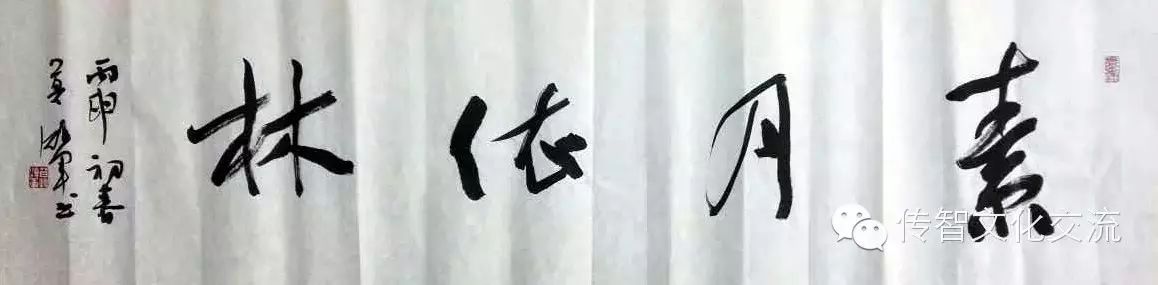 素月依林
丙申初春
书
传智文化交流